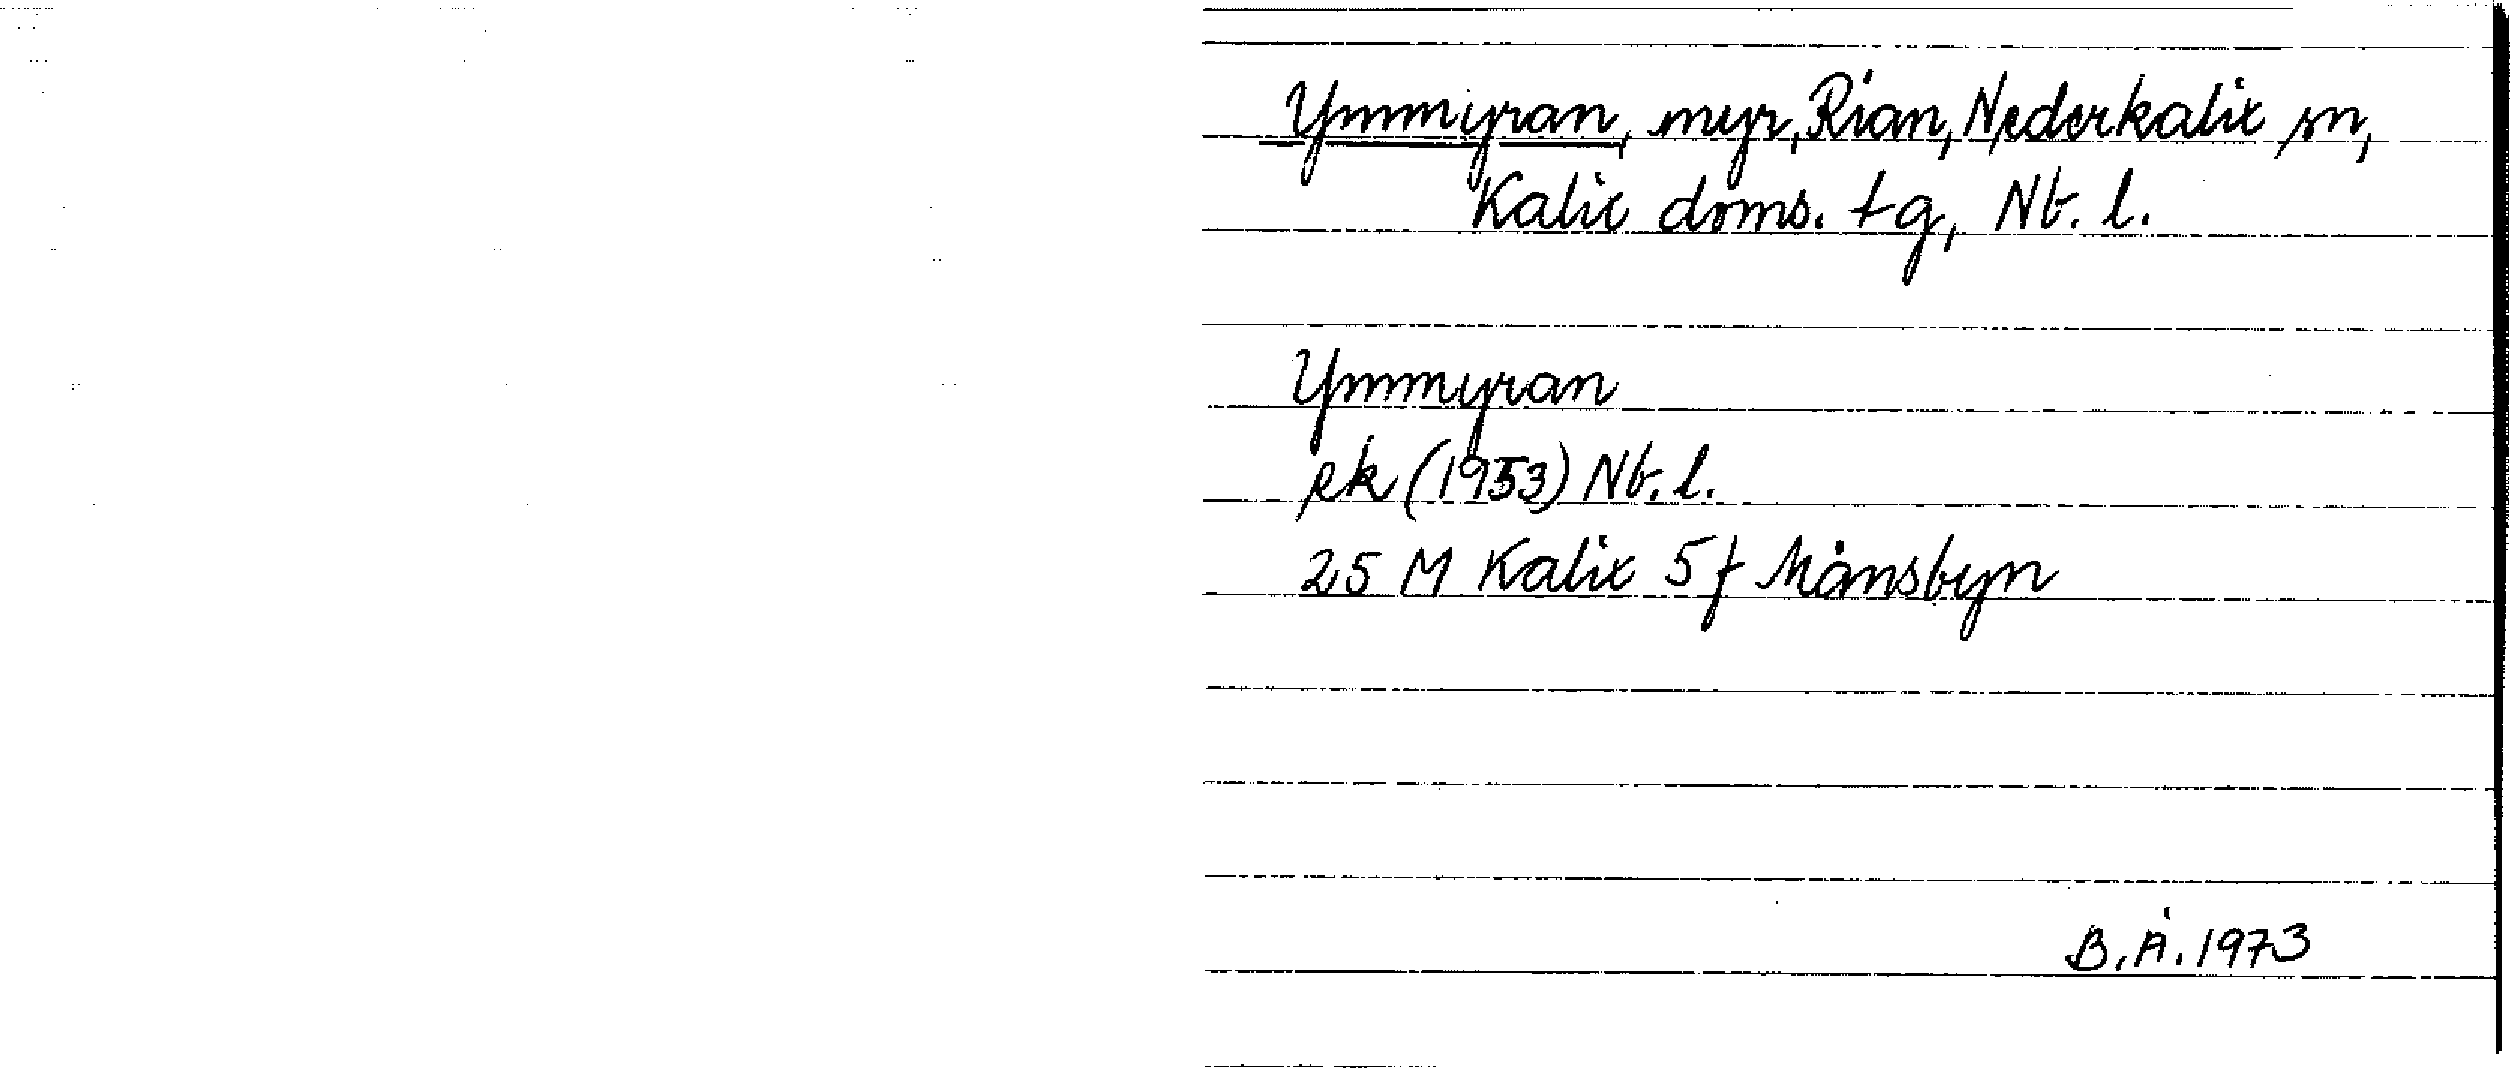 Ymmyran, myr, Rian, Nederkalix sn,
Kalix doms. tg, Nb. l.
Ymmyran
ek (1953) Nb. l.
25 M Kalix 5 f Månsbyn
B.Å. 1973